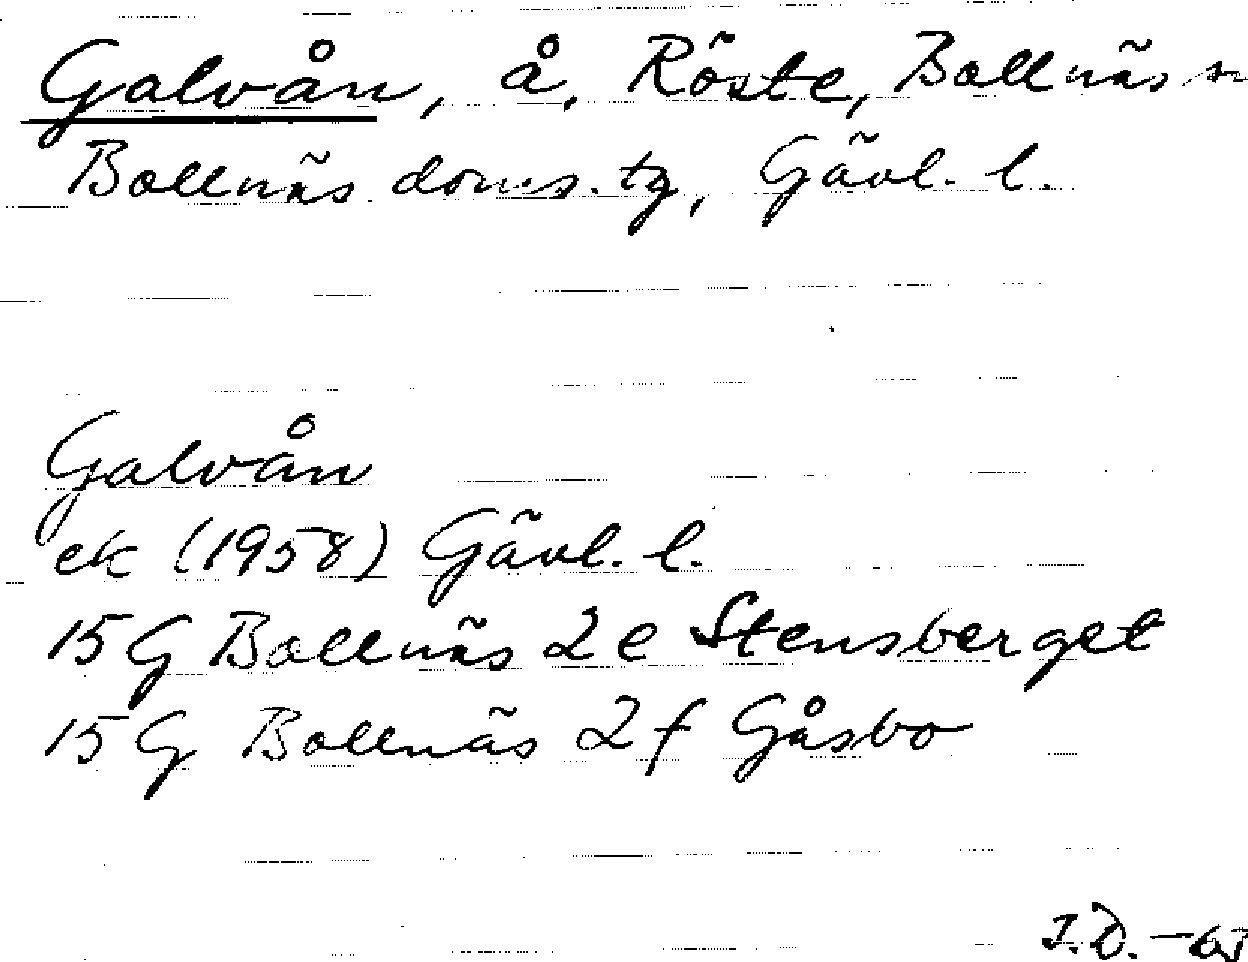 Galvån, å, Röste, Bollnäs sn
Bollnäs doms. tg, Gävl. l.
Galvån
ek (1958) Gävl. l.
15 G Bollnäs 2 e Stensberget
15 G Bollnäs 2 f Gåsbo